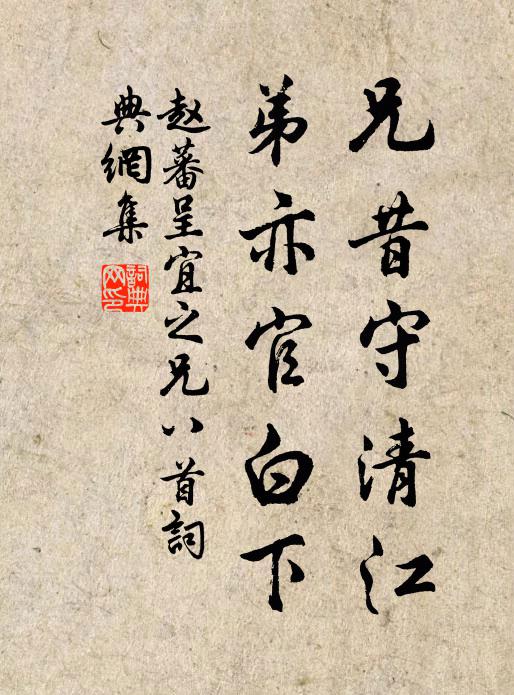 兄昔守清江
弟亦官白下
赵蕃呈宜之兄八首詞
典網集
詞典
网印